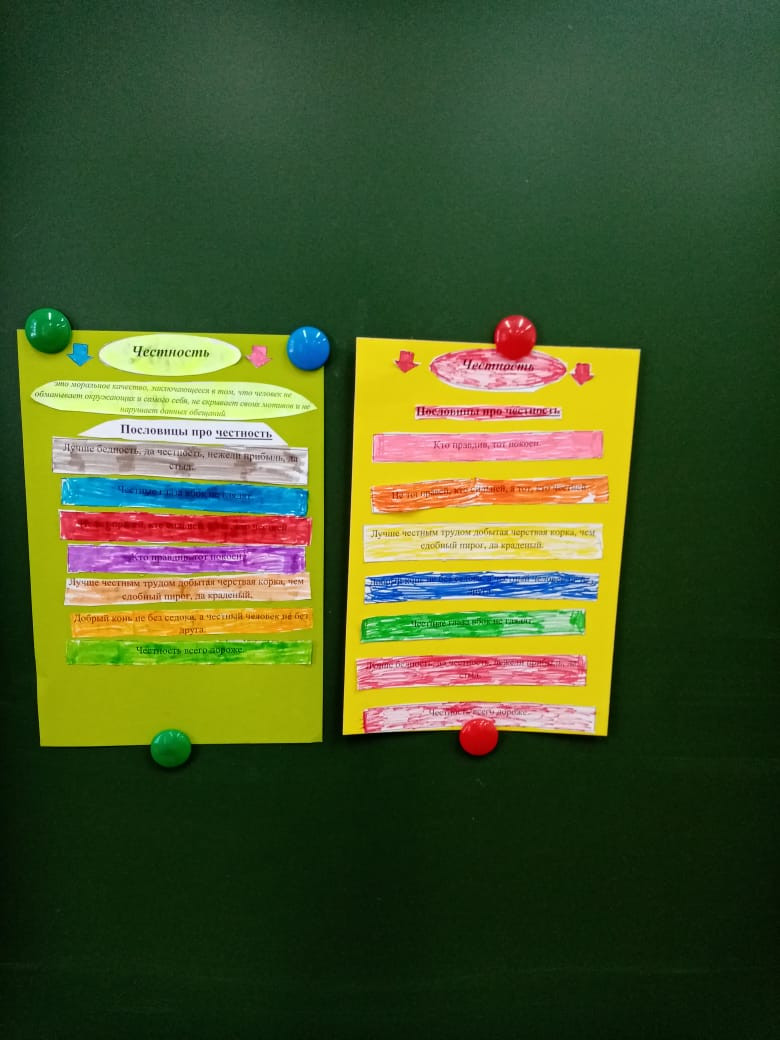 Честность
это моральное качество, заключающееся в том, что человек не
обманывает окружающих и самого себя, не скрывает своих мотивов и не
нарушает данных обещаний
Пословицы про честность
Лучше бедность, да честность, нежели прибыль, да
стыд.
Честные глаза вбок не глядят.
кто сильней
Кто правдив, тот покоен.
Лучше честным трудом добытая черствая корка, чем
сдобный пирог, да краденый.
Добрый конь не без седока, а честный человек не без
друга.
Честность всего дороже.
Честность
Пословицы про честность
Кто правдив, тот покоен.
Не тот правей, кто сильней, а тот, кто честней.
Лучше честным трудом добытая черствая корка, чем
сдобный пирог, да краденый.
Добрый конь не без седока, а честный человек не без
друга.
Честные глаза вбок не глядят.
Лучше бедность, да честность, нежели прибыль, да
стыд.
Честность всего дороже.